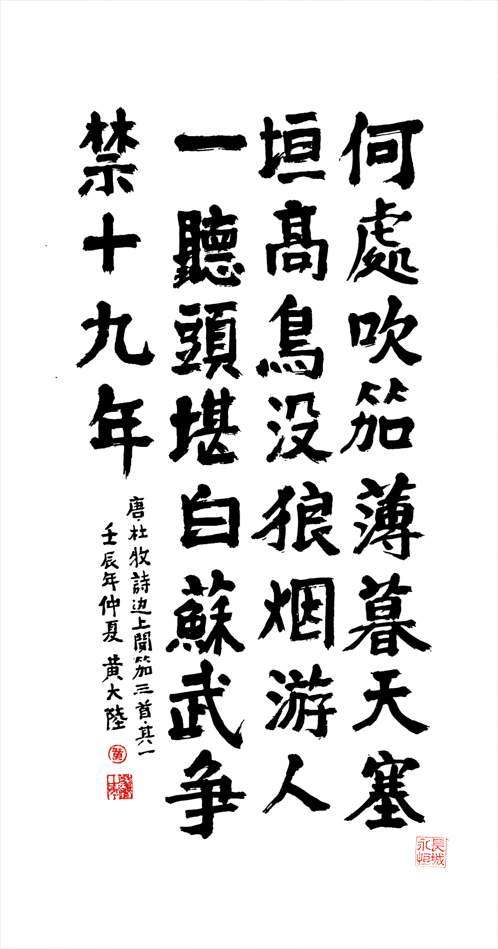 何處吹笳薄暮天塞
垣髙鳥没狼烟游人
一聽頭堪白蘇武争
禁十九年
唐·杜牧詩边上聞笳三首·其一
壬辰年仲夏 黄大陸
黄
長城
永恒